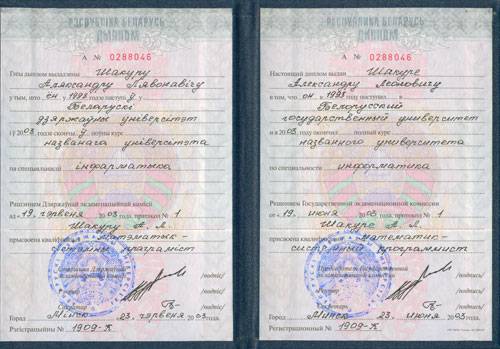 РЭСПУБЛІКА БЕЛАРУСЬ
ДЫПЛОМ
А № 0288046
Гэты дыплом выдадзены Шакуру
Аляксандру Лявонавічу
у тым, што ён у 1998 годзе паступіў у
Беларускі
дзяржаўны ўніверсітэт
і ў 2003 годзе скончыў поўны курс
названага універсітэта
па спецыяльнасці
інфарматыка
Рашэннем Дзяржаўнай экзаменацыйнай камісіі
ад « 19 » чэрвеня 2003 года, пратакол № 1
Шакуру А. Л.
прысвоена кваліфікацыя матэматык-
сістэмны праграміст
/подпіс/
/подпіс/
/подпіс/
Горад Мінск 23 чэрвеня 2003г.
Рэгістрацыйны № 1909-Ж
РЕСПУБЛИКА БЕЛАРУСЬ
ДИПЛОМ
А № 0288046
Настоящий диплом выдан Шакуре
Александру Леоновичу
в том, что он в 1998 году поступил в
Белорусский
государственный университет
и в 2003 году окончил полный курс
названного университета
по специальности
информатика
Решением Государственной экзаменационной комиссии
от « 19 » июня 2003 года, протокол № 1
Шакуре А. Л.
присвоена квалификация математик-
системный программист
Председатель Государственной
экзаменационной комиссии
/подпись/
В ректор
/подпись/
Секретарь
/подпись/
Город Минск 23 июня 2003г.
Регистрационный № 1909-Ж